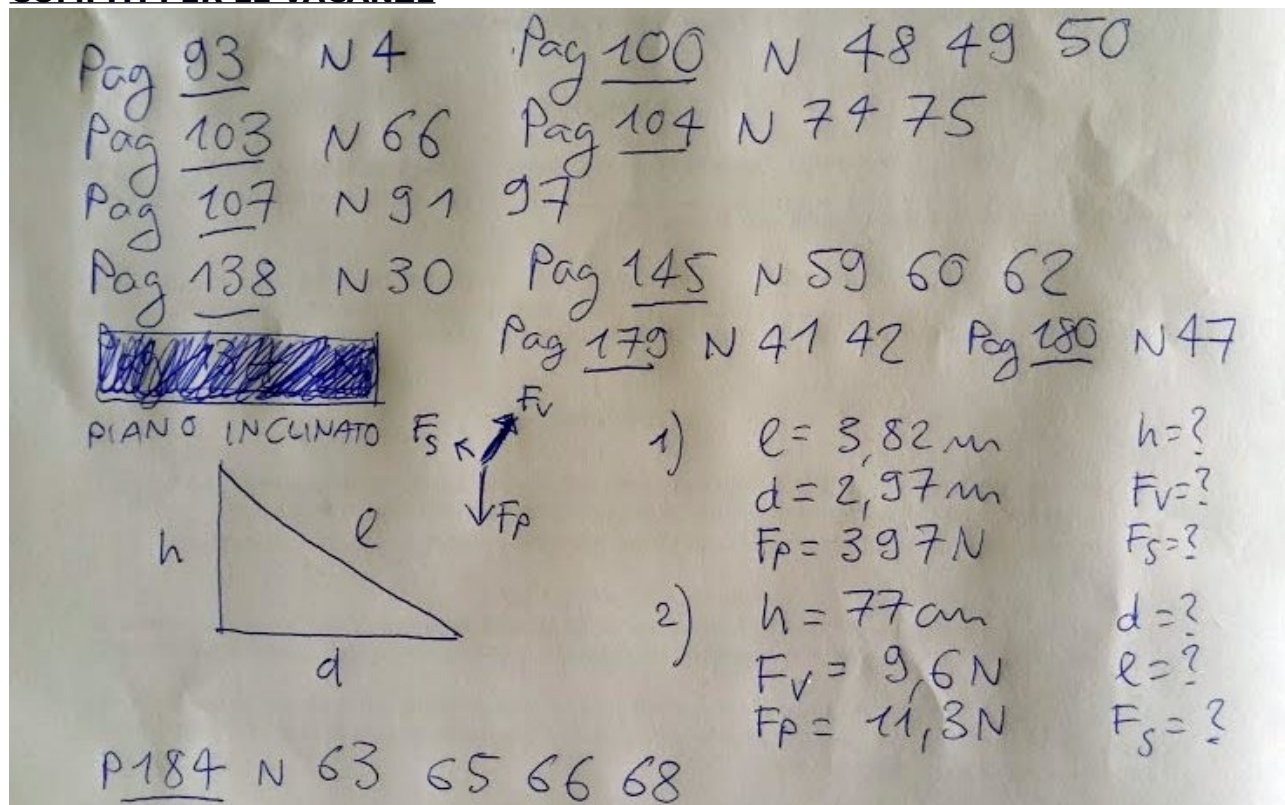 COMPITI PER LE VACANZE
Pag 93 N 4 Pag 100 N 48 49 50
Pag 103 N 66 Pag 104 N 74 75
Pag 107 N 91 97
Pag 138 N 30 Pag 145 N 59 60 62
Pag 179 N 41 42 Pag 180 N 47
PIANO INCLINATO Fs Fv Fp
h l d
1) l = 3,82 m h=?
d = 2,97 m Fv=?
Fp = 397 N Fs=?
2) h = 77 cm d = ?
Fv = 9,6 N l = ?
Fp = 11,3 N Fs = ?
P184 N 63 65 66 68